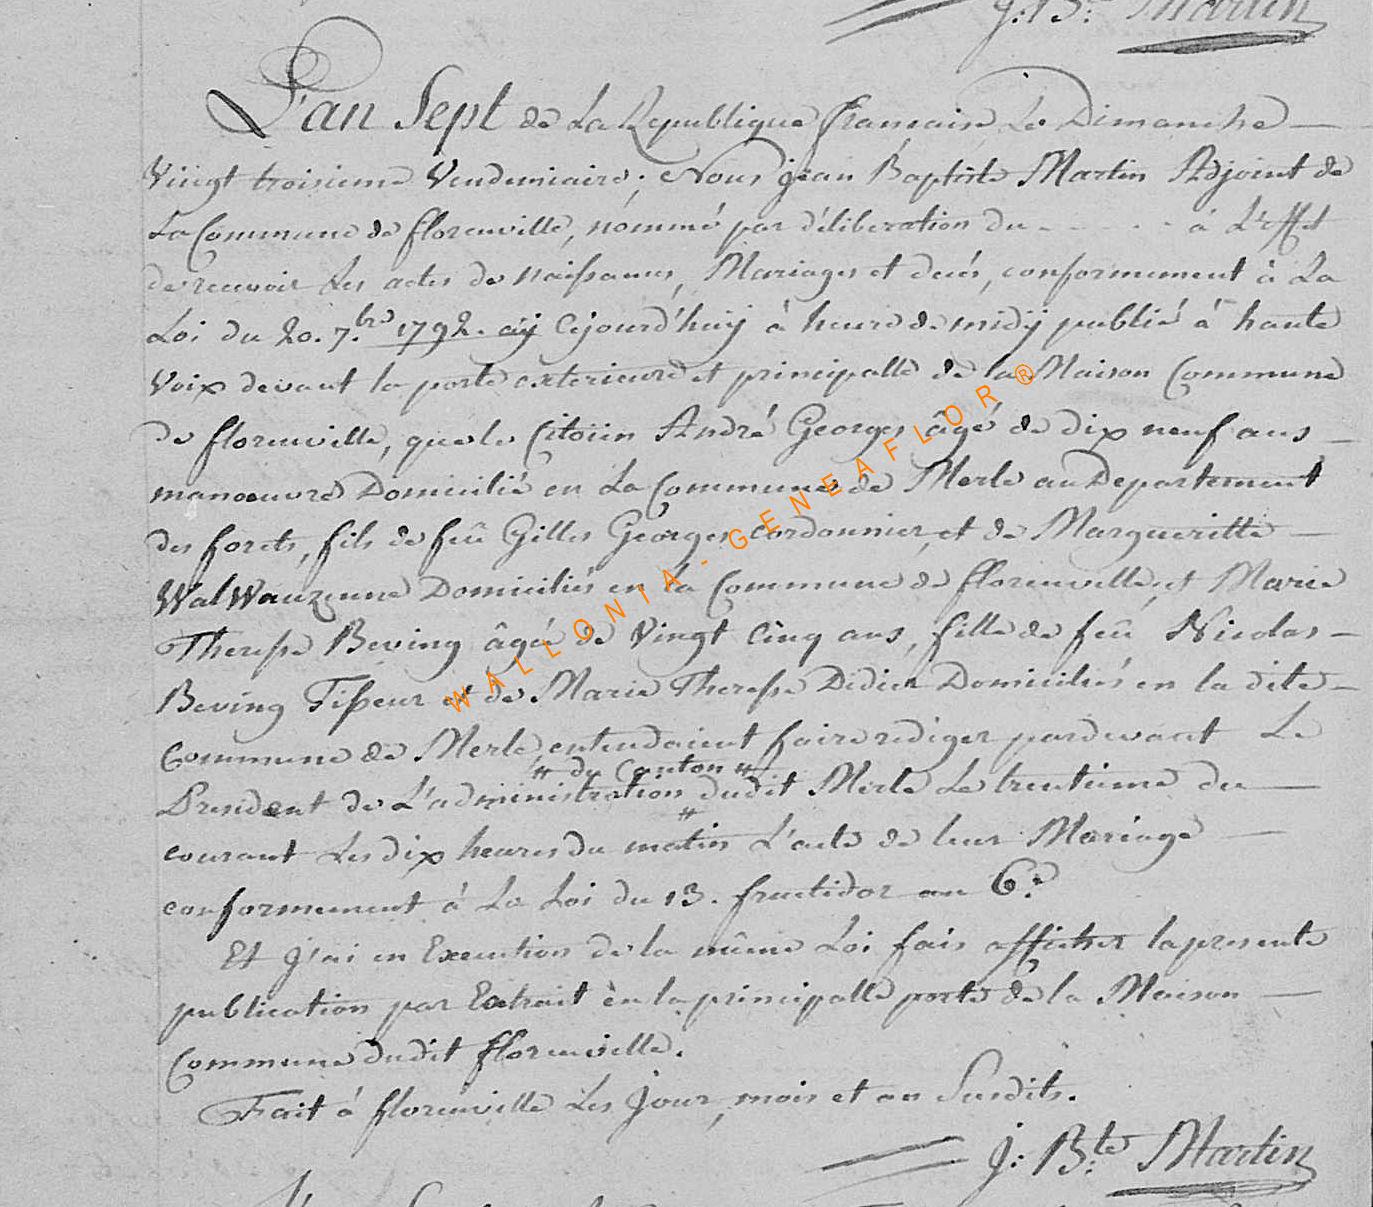 J: B.te Martin
L'an Sept de La Republique française, Le Dimanche
Vingt troisieme Vendemiaire; Nous Jean Baptiste Martin Adjoint de
La Commune de florenville, nommé par déliberation du - - - - - à L'effet
de recevoir Les actes de Naissances, Mariages et decés, conformement à La
Loi du 20. 7.bre 1792. aÿ Cejourd'huÿ à heure de midÿ publié à haute
Voix devant la porte exterieure et principalle de la Maison Commune
de florenville, que le Citoïen André Georges âgé de dix neuf ans
manoeuvre Domicilié en La Commune de Merle au Departement
des forets, fils de feû Gilles Georges cordonnier, et de Margueritte
WalWauzenne Domiciliés en la Commune de florenville, et Marie
Therese Beving âgée de Vingt Cinq ans, fille de feû Nicolas
Beving Tisseur et de Marie Therese Didier Domiciliés en la dite
Commune de Merle, entendaient faire rediger pardevant Le
# du Canton #
President de L'administration dudit Merle Le trentieme du
courant Les dix heures du matin L'acte de leur Mariage
conformement à La Loi du 13. fructidor an 6.e
Et J'ai en Execution de la même Loi fais afficher la presente
publication par Extrait èn la principalle porte de la Maison
Commune dudit florenville.
Fait à florenville Les Jour, mois et an Susdits.
J: B.te Martin
WALLONIA-GENEAFLOR®